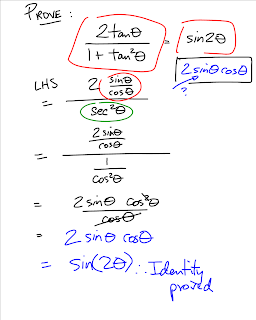 PROVE :
2tanθ / 1 + tan²θ = sin2θ
2sinθcosθ
?
LHS
= 2 sinθ/cosθ / sec²θ
= 2sinθ/cosθ / 1/cos²θ
= 2sinθ cos²θ / cosθ
= 2 sinθ cosθ
= sin(2θ) ∴ Identity
proved